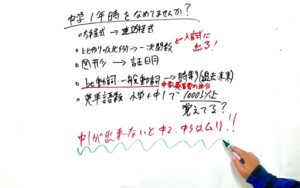 中学1年時をなめてませんか?
○方程式 → 連立方程式
○比例・反比例 → 一次関数 ←入試に出る!
○図形 → 証明
○be動詞・一般動詞 → 時制(過去・未来)
○英単語数 小学+中1で1000以上
覚えてる?
中1が出来ないと中2、中3はムリ!!